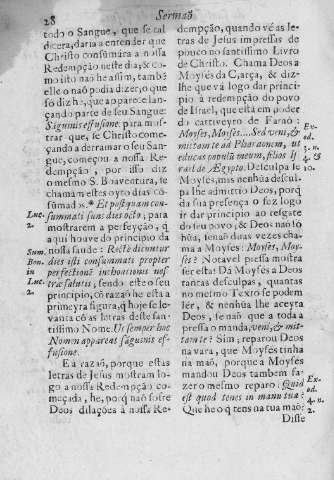 28
Sermaõ
todo o Sangue, que se tal
dicera, daria a entender que
Christo consumára a nossa
Redempção neste dia; & co-
mo isto naõ he assim, també
elle o naõ podia dizer, o que
só diz he, que apparece lan-
çando parte de seu Sangue:
Sãguinis effusione: para mos-
trar, que se Christo come-
çando a derramar o seu San-
gue, começou a nossa Re-
dempção, por isso diz
o mesmo S. Boaventura, se
chamaõ estes oyto dias có-
sumados. * Et postquam con-
Luc.
2.
summati sunt dies octo, para
mostrarem a perfeyção, q
aqui houve do principio da
nossa saude: Recte dicuntur
Sum.
Bon.
in
Luc.
2.
dies isti consummati propter
perfectionẽ inchoationis nos-
træ salutis, sendo este o seu
principio, có razaõ he esta a
primeyra figura, q hoje le-
vanta có as letras deste san-
tissimo Nome. Ut semper hoc
Nomen appareat sãguinis ef-
fusione.
E a razaõ, porque estas
letras de Jesus mostraõ lo-
go a nossa Redempção co-
meçada, he, porq naõ sofre
Deos dilações à nossa Re-
dempção, quando vê as le-
tras de Jesus impressas de
pouco no santissimo Livro
de Christo. Chama Deos a
Moysés da C,arça, & diz-
lhe que vá logo dar princi-
pio à redempção do povo
de Israel, que está em poder
do cattiveyro de Faraó:
Moyses, Moyses.... Sed veni, &
Ex-
od.
3. n.
4. &
10.
mittam te ad Pharaonem, ut
educas populũ meum, filios Is-
rael de Ægypto. Desculpa se
Moysés, mas nenhũa descul-
pa lhe admittio Deos, porq
da sua presença o fez logo
ir dar principio ao resgate
do seu povo; & Deos naõ só
hũa, senaõ duas vezes cha-
ma a Moysés: Moyses, Moy-
ses? Notavel pressa mostra
ser esta! Dá Moysés a Deos
tantas desculpas, quantas
no mesmo Texto se podem
ler, & nenhũa lhe aceyta
Deos, senaõ que a toda a
pressa o manda, veni, & mit-
tam te? Sim; reparou Deos
na vara, que Moysés tinha
na maõ, porque a Moysés
mandou Deos tambem fa-
zer o mesmo reparo: Quid
Ex-
od.
4. n.
2.
est quod tenes in manu tua?
Que he o q tens na tua maõ?
Disse